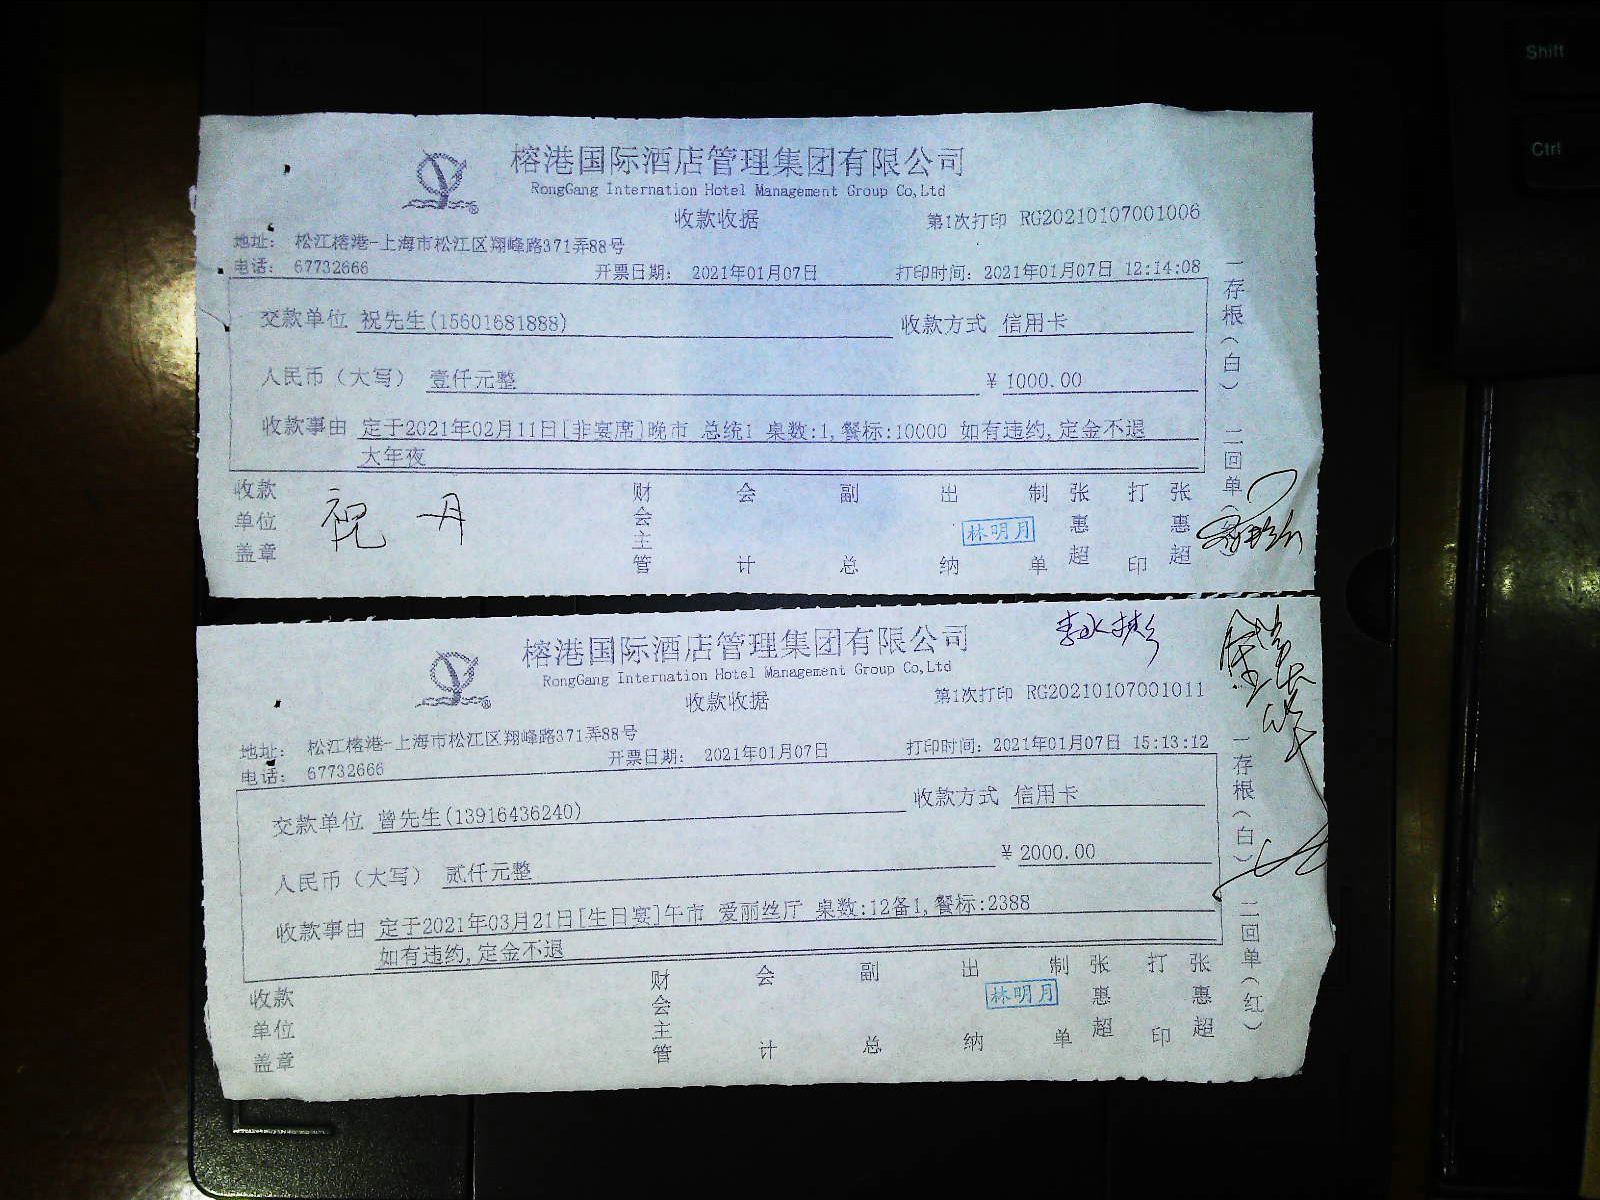 Shift
Ctrl
榕港国际酒店管理集团有限公司
RongGang Internation Hotel Management Group Co,Ltd
收款收据
第1次打印 RG20210107001006
地址: 松江榕港-上海市松江区翔峰路371弄88号
电话: 67732666
开票日期: 2021年01月07日
打印时间: 2021年01月07日 12:14:08
交款单位 祝先生(15601681888)
收款方式 信用卡
人民币(大写) 壹仟元整
¥ 1000.00
收款事由 定于2021年02月11日[非宴席]晚市 总统1 桌数:1,餐标:10000 如有违约,定金不退
大年夜
收款单位盖章
祝 月
财会主管
会计
副总
出纳
林明月
制单
张惠超
打印
张惠超
一存根(白) 二回单
榕港国际酒店管理集团有限公司
RongGang Internation Hotel Management Group Co,Ltd
收款收据
第1次打印 RG20210107001011
地址: 松江榕港-上海市松江区翔峰路371弄88号
电话: 67732666
开票日期: 2021年01月07日
打印时间: 2021年01月07日 15:13:12
交款单位 曾先生(13916436240)
收款方式 信用卡
人民币(大写) 贰仟元整
¥ 2000.00
收款事由 定于2021年03月21日[生日宴]午市 爱丽丝厅 桌数:12备1,餐标:2388
如有违约,定金不退
收款单位盖章
财会主管
会计
副总
出纳
林明月
制单
张惠超
打印
张惠超
一存根(白) 二回单(红)